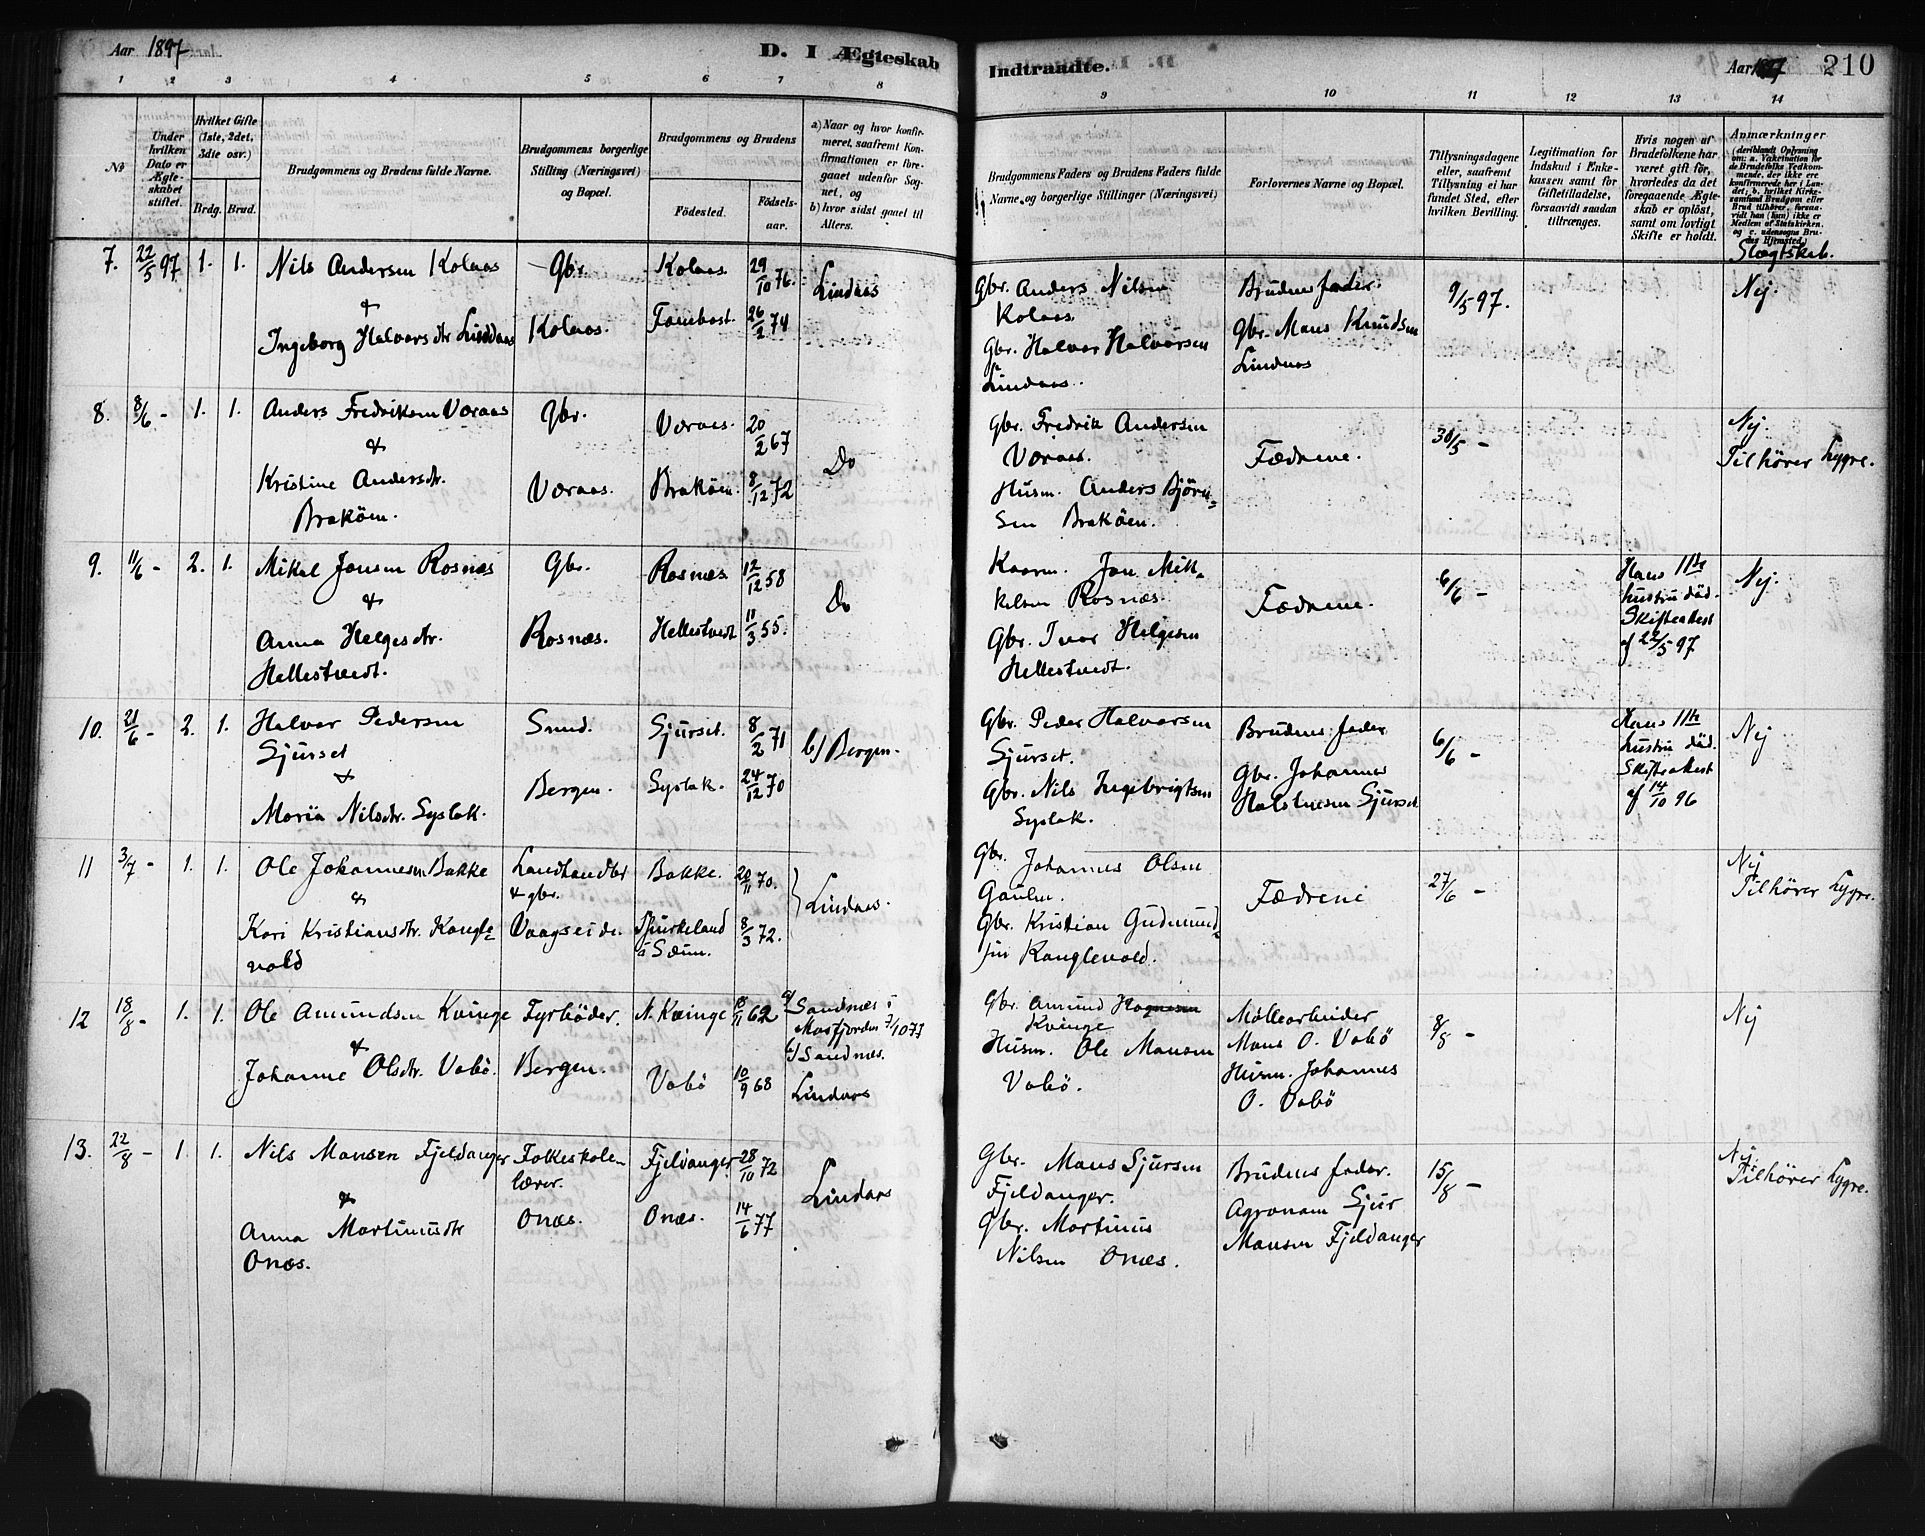 Aar 1897
D. I Ægteskab
Indtraadte.
Aar 1897 210
1 2 3 4 5 6 7 8 9 10 11 12 13 14
No
Under hvilken Dato er Ægteskabet stiftet.
Hvilket Gifte (1ste, 2det, 3die osv.)
Brdg. Brud.
Brudgommens og Brudens fulde Navne.
Brudgommens borgerlige Stilling (Næringsvei) og Bopæl.
Brudgommens og Brudens
Fødested. Fødselsaar.
a) Naar og hvor konfirmeret, saafremt Konfirmationen er foregaaet udenfor Sognet, og
b) hvor sidst gaaet til Alters.
Brudgommens Faders og Brudens Faders fulde Navne og borgerlige Stillinger (Næringsvei)
Forlovernes Navne og Bopæl.
Tillysningsdagene eller, saafremt Tillysning ei har fundet Sted, efter hvilken Bevilling.
Legitimation for Indskud i Enkekassen samt for Giftetilladelse, forsaavidt saadan tiltrænges.
Hvis nogen af Brudefolkene har været gift før, hvorledes da det foregaaende Ægteskab er opløst, samt om lovligt Skifte er holdt.
Anmærkninger
(deriblandt Oplysning om: a. Vakcination for de Brudefolks Vedkommende, der ikke ere konfirmerede her i Landet; b. hvilket Kirkesamfund Brudgom eller Brud tilhører, forsaavidt han (hun) ikke er Medlem af Statskirken, og c. udensogns Brudes Hjemsted.)
Slægtskab.
7. 22/5 97 1. 1. Nils Andersen Kolaas Gbr. Kolaas. 29/10 76. Lindaas Gbr. Anders Nilsen Brudens fader. 9/5 97. Nej.
& Kolaas.
Ingeborg Halvorsdtr Linddaas Kolaas. Fanebost. 26/2 74 Gbr. Halvor Halvorsen Gbr. Mons Knudsen
Lindaas. Lindaas
8. 8/6 - 1. 1. Anders Fredriksen Voraas Gbr. Voraas. 20/2 67 Do Gbr. Fredrik Andersen Fædrene. 30/5 - Nej.
& Voraas. Tilhører Lygre.
Kristine Andersdtr. Voraas. Brakøen. 8/12 72 Husm. Anders Bjørn-
Brakøen. sen Brakøen.
9. 11/6 - 2. 1. Mikal Jonsen Rosnæs Gbr. Rosnæs. 12/12 58 Do Kaarm. Jon Mik- Fædrene. 6/6 - Hans IIte Nej.
& kelsen Rosnæs. hustru død.
Anna Helgesdtr. Rosnæs. Hellestvedt 11/3 55. Gbr. Ivar Helgesen Skifteattest
Hellestvedt. Hellestvedt. af 22/5 97
10. 21/6 - 2. 1. Halvor Pedersen Smed. Sjurset. 8/2 71 b/ Bergen. Gbr. Peder Halvorsen Brudens fader 6/6 - Hans IIte Nej
Sjurset Sjurset. hustru død.
& Gbr. Johannes Skifteattest
Maria Nilsdtr. Syslak. Bergen. Syslak. 24/12 70 Gbr. Nils Ingebrigtsen Halstensen Sjurset af 14/10 96
Syslak.
11 3/7 - 1. 1. Ole Johannesen Bakke Landhandler Bakke. 20/11 70. Lindaas. Gbr. Johannes Olsen Fædrene 27/6 - Nej
& & gbr. Tilhører Lygre.
Kari Kristiansdtr. Kangle- Vaagseide. 8/3 72. Gbr. Kristian Gudmund-
vold sen Kanglevold.
12 18/8 - 1. 1. Ole Amundsen Kvinge Fyrbøder. N. Kvinge 62 a/ Sandnæs i Gbr. Amund Kvinge Møllearbeider 8/8 - Nej
& Masfjorden 7/10 77 Mons O. Vabø
Johanne Olsdtr. Vabø. Bergen. Vabø 10/9 68 b/ Sandnæs. Husm. Ole Monsen Husm. Johannes
Lindaas Vabø. O. Vabø
13. 22/8 - 1. 1. Nils Monsen Fjeldanger Folkeskole- Fjeldanger 28/10 72 Lindaas Gbr. Mons Sjursen Brudens fader. 15/8 - Nej.
lærer. Fjeldanger. Tilhører Lygre.
& Agronom Sjur
Anna Martinusdtr Onæs. Onæs. 14/6 77 Gbr. Martinus Monsen Fjeldanger
Onæs. Nilsen Onæs.